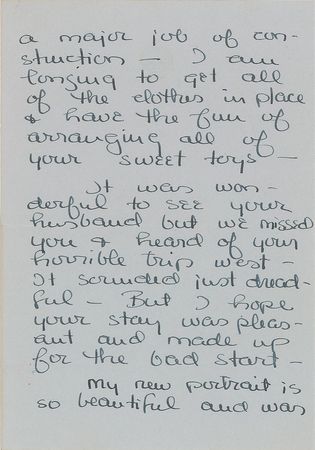 a major job of con-
struction — I am
longing to get all
of the clothes in place
& have the fun of
arranging all of
your sweet toys —
It was won-
derful to see your
husband but we missed
you & heard of your
horrible trip west —
It sounded just dread-
ful — But I hope
your stay was pleas-
ant and made up
for the bad start —
My new portrait is
so beautiful and was